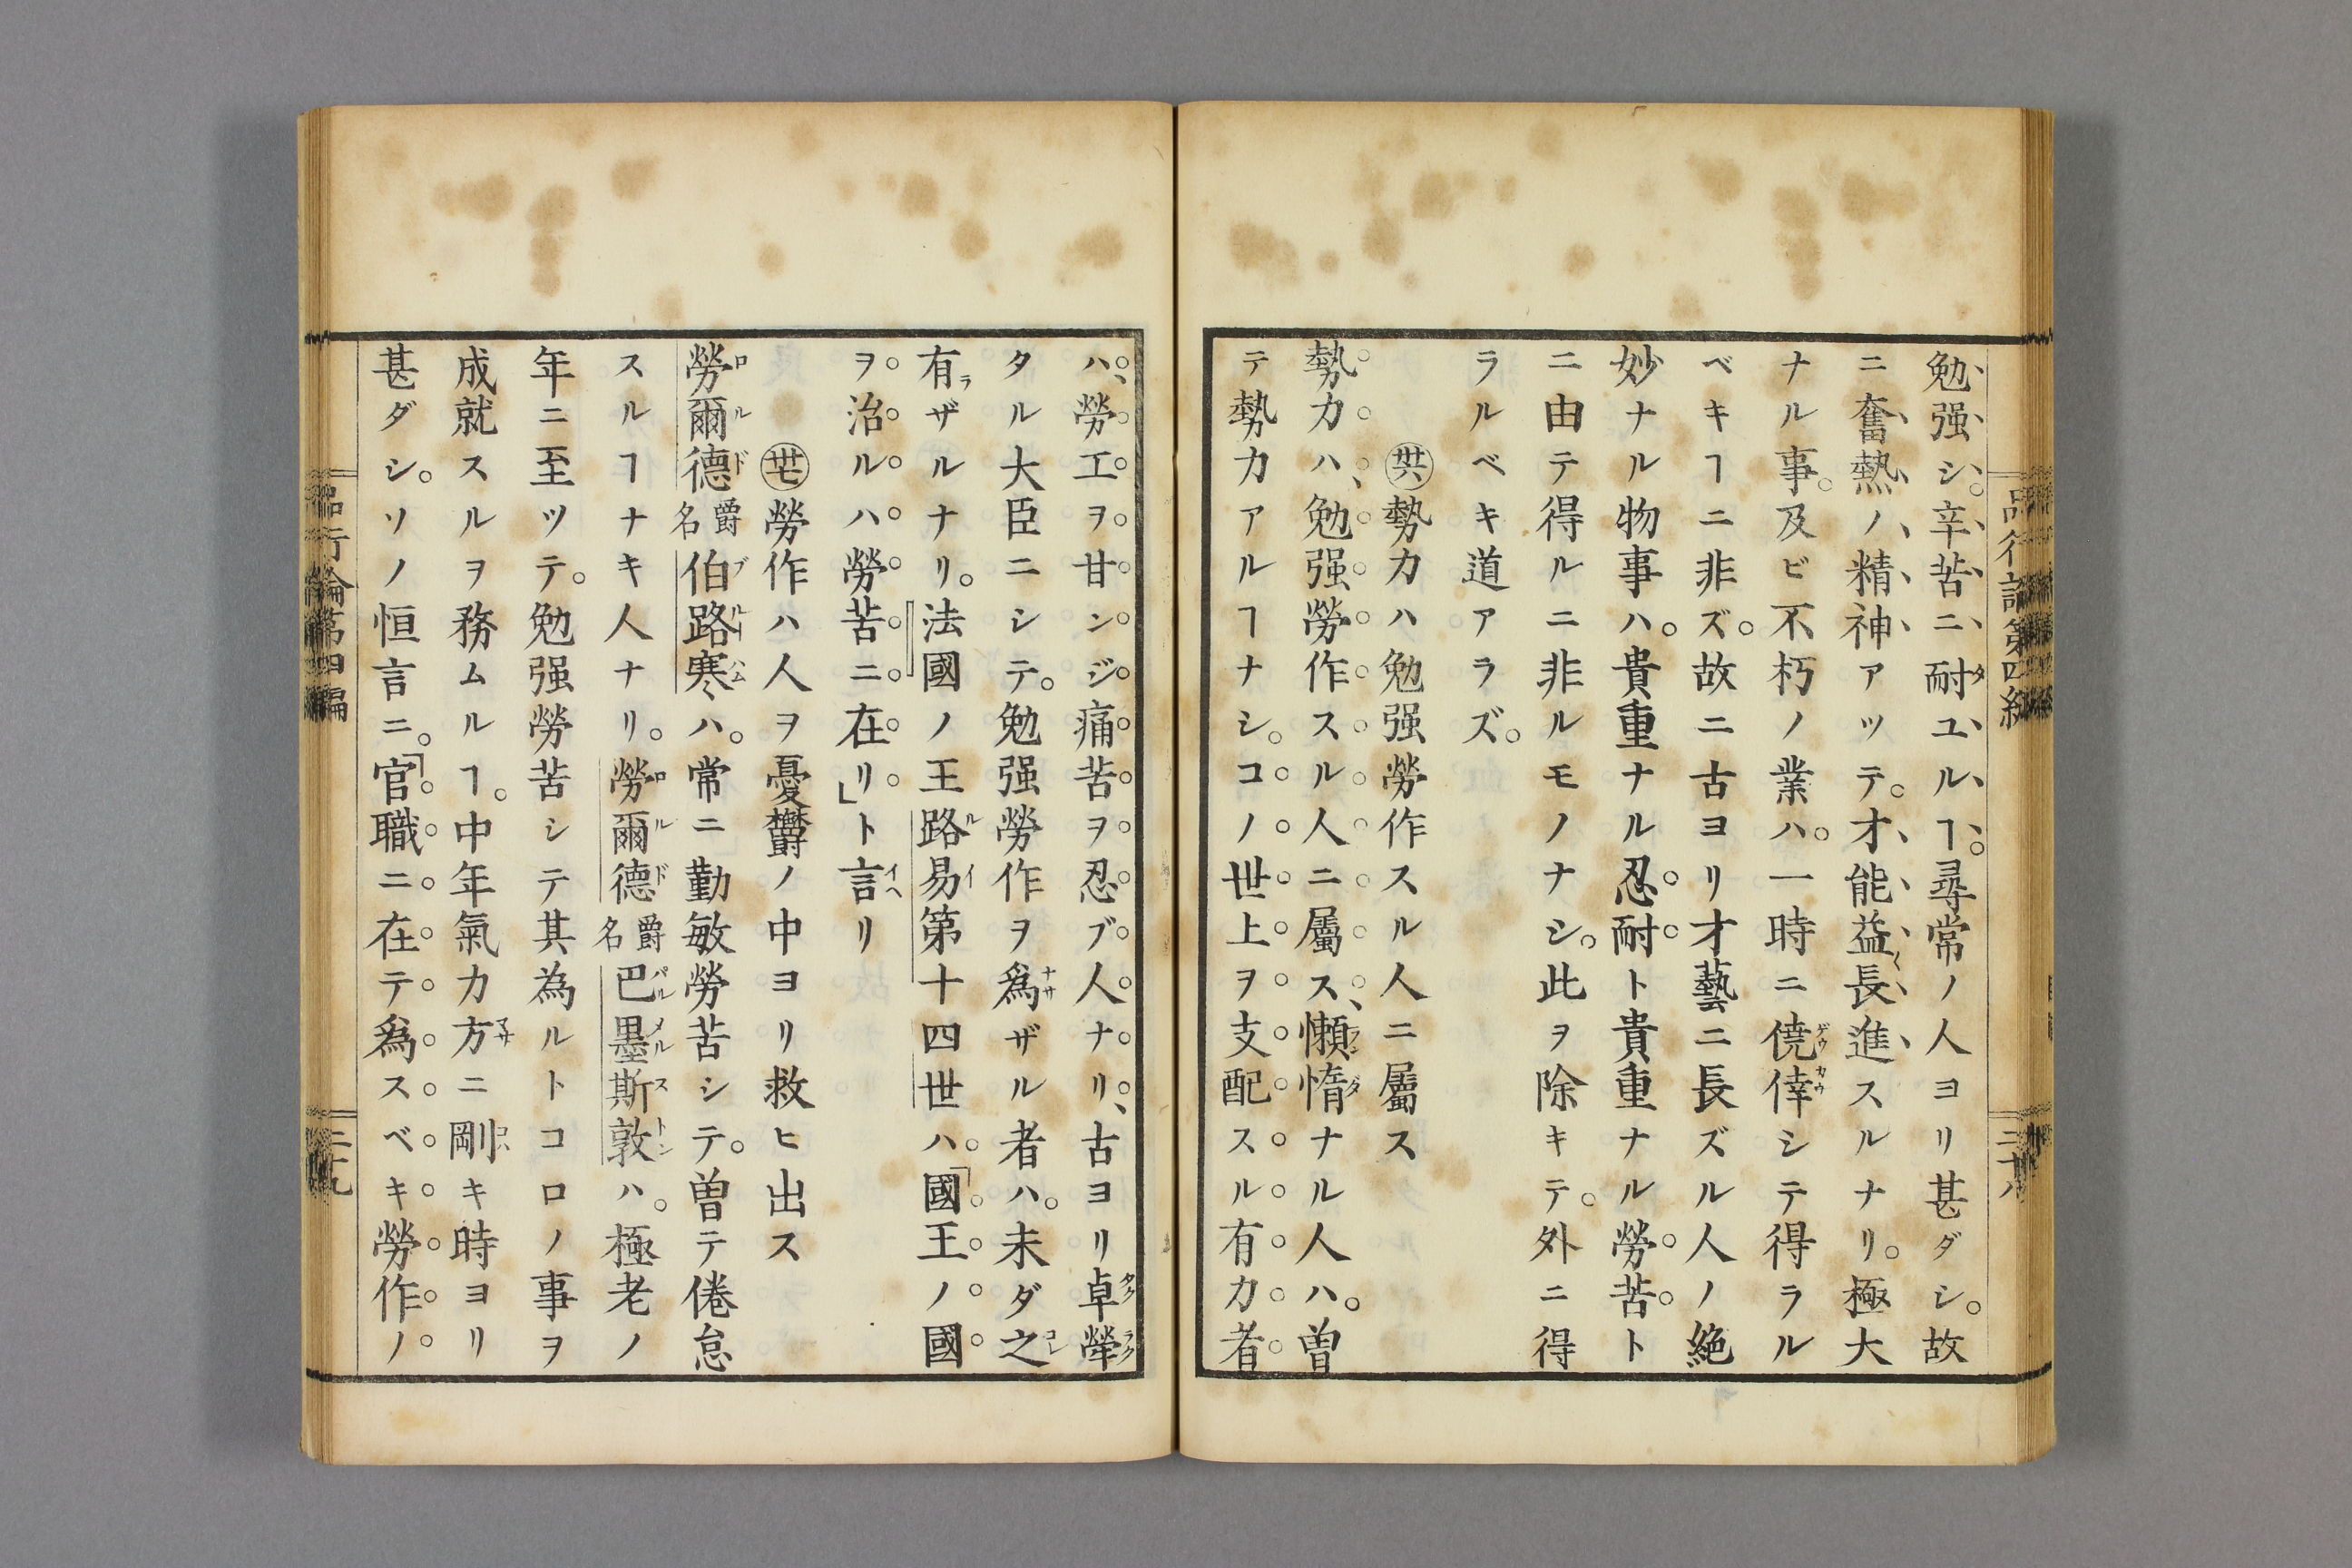 勉强シ。辛苦ニ耐ユルヿ。尋常ノ人ヨリ甚ダシ。故
ニ奮熱ノ精神アツテ。才能益〻長進スルナリ。極大
ナル事。及ビ不朽ノ業ハ。一時ニ僥倖シテ得ラル
ベキヿニ非ズ。故ニ古ヨリ才藝ニ長ズル人ノ絶
妙ナル物事ハ。貴重ナル忍耐ト貴重ナル勞苦ト
ニ由テ得ルニ非ルモノナシ。此ヲ除キテ。外ニ得
ラルベキ道アラズ。
㊅勢力ハ勉强勞作スル人ニ屬ス
勢力ハ、勉强勞作スル人ニ屬ス、懶惰ナル人ハ。曽
テ勢力アルヿナシ。コノ世上ヲ支配スル有力者
ハ、勞工ヲ甘ンジ痛苦ヲ忍ブ人ナリ、古ヨリ卓犖
タル大臣ニシテ。勉强勞作ヲ爲ザル者ハ。未ダ之
有ザルナリ。法國ノ王路易第十四世ハ。「國王ノ國
ヲ治ルハ勞苦ニ在リ」ト言リ
勞作ハ人ヲ憂欝ノ中ヨリ救ヒ出ス
勞爾德爵名伯路寒ハ。常ニ勤敏勞苦シテ。曽テ倦怠
スルヿナキ人ナリ。勞爾德爵名巴墨斯敦ハ。極老ノ
年ニ至ツテ。勉强勞苦シテ其為ルトコロノ事ヲ
成就スルヲ務ムルヿ。中年氣力方ニ剛キ時ヨリ
甚ダシ。ソノ恒言ニ。「官職ニ在テ爲スベキ勞作ノ
品行論第四編